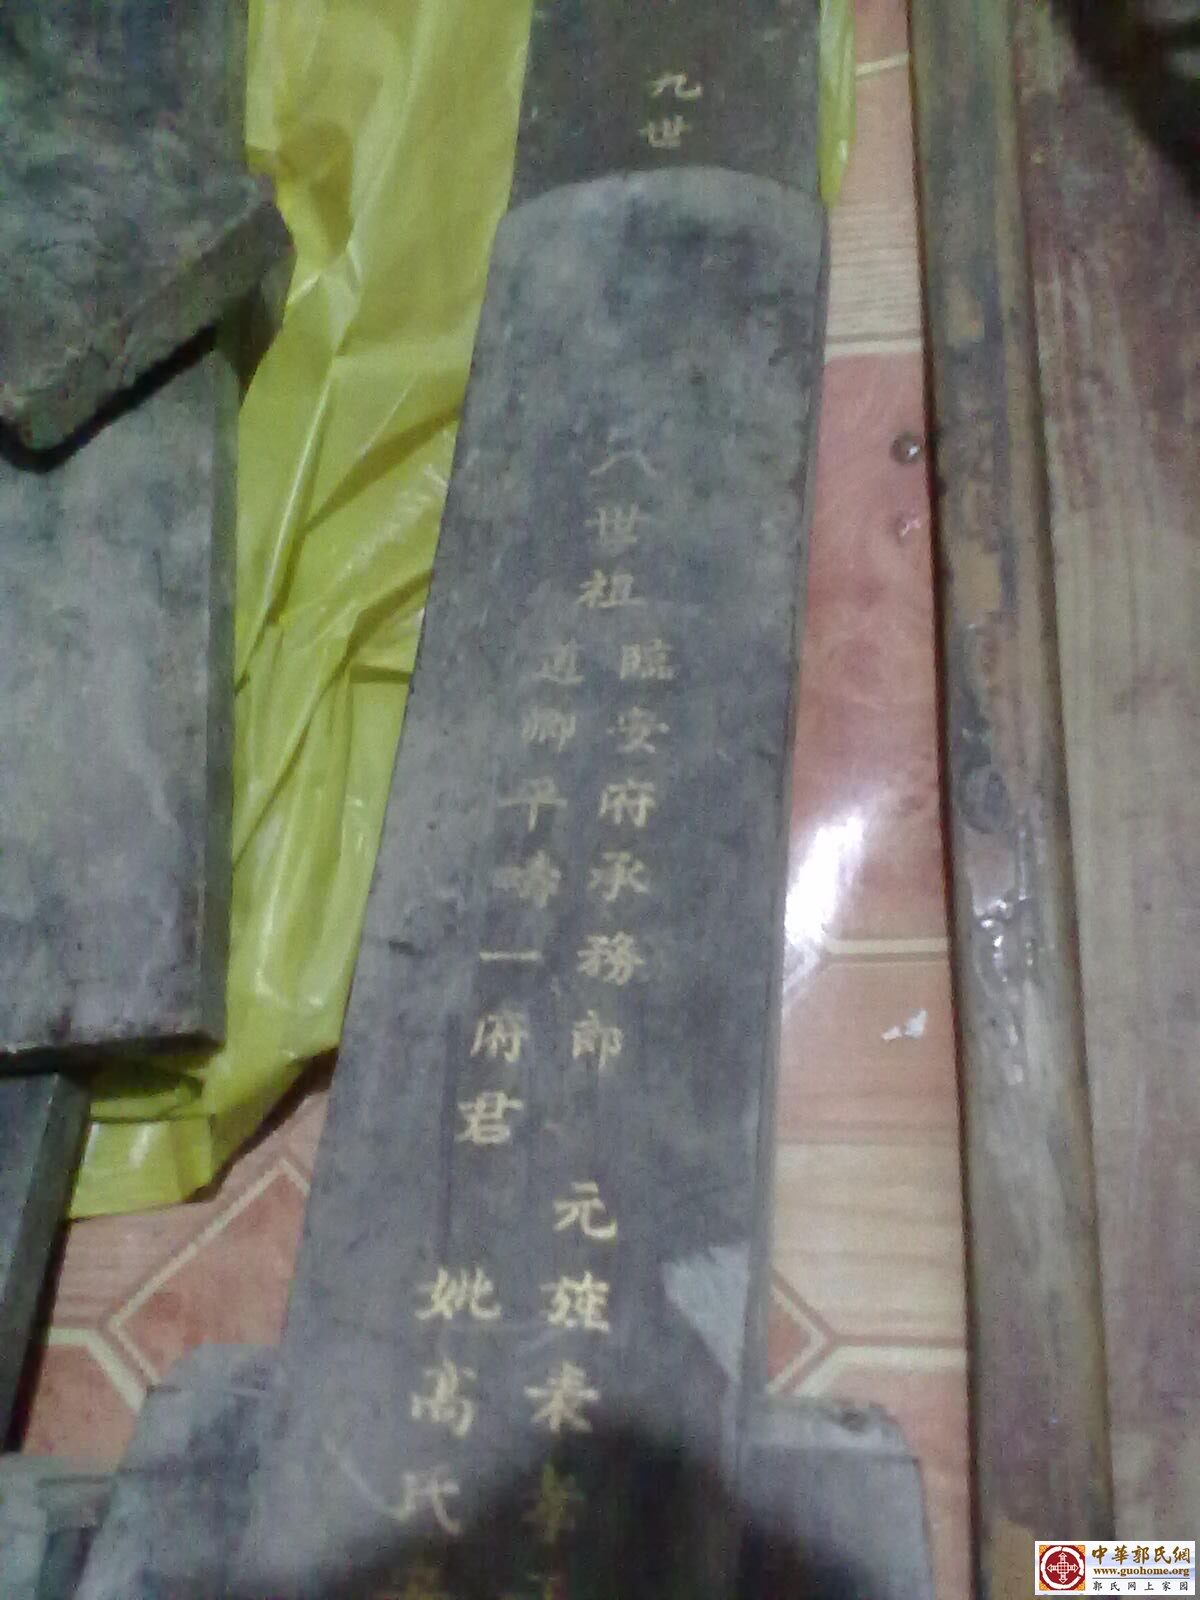 九世
八世祖
臨安府承務郎
道卿平疇一府君
元
妣高氏
中華郭氏網
www.guohome.org
郭氏网上家园